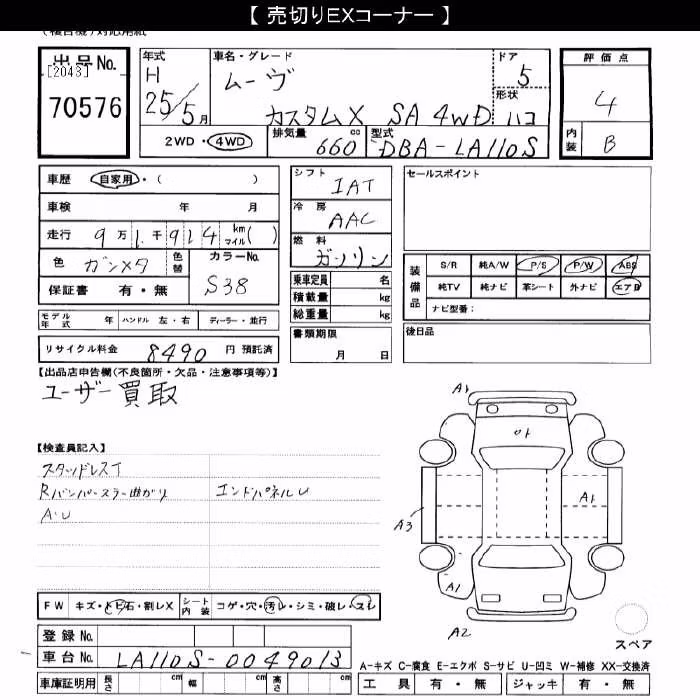 【 売切りEXコーナー 】
出品No.
[2043]
70576
年式
H
25/5月
車名・グレード
ムーヴ
カスタムX SA 4WD
ドア
5
形状
ハコ
評価点
4
内装
B
2WD・4WD
排気量
660 cc
型式
DBA-LA110S
車歴 自家用・( )
車検 年 月
走行 9万1千914 km マイル( )
色 ガンメタ 色替
カラーNo.
S38
保証書 有・無
モデル年式 年 ハンドル 左・右 ディーラー・並行
リサイクル料金 8490 円 預託済
シフト
IAT
冷房
AAC
燃料
ガソリン
乗車定員 名
積載量 kg
総重量 kg
書類期限
月 日
セールスポイント
装備品
S/R 純A/W P/S P/W ABS
純TV 純ナビ 革シート 外ナビ エアB
ナビ型番:
後日品
【出品店申告欄(不良箇所・欠品・注意事項等)】
ユーザー買取
【検査員記入】
スタッドレスT
Rバンパースラー曲がり エンドパネルU
A・U
A1
A1
A3
A1
A2
スペア
FW キズ・トビ石・割レX
シート内装 コゲ・穴・汚レ・シミ・破レ・スレ
登録No.
車台No. LA110S-0049013
車庫証明用 長さ cm 幅 cm 高さ cm
A-キズ C-腐食 E-エクボ S-サビ U-凹ミ W-補修 XX-交換済
工具 有・無 ジャッキ 有・無